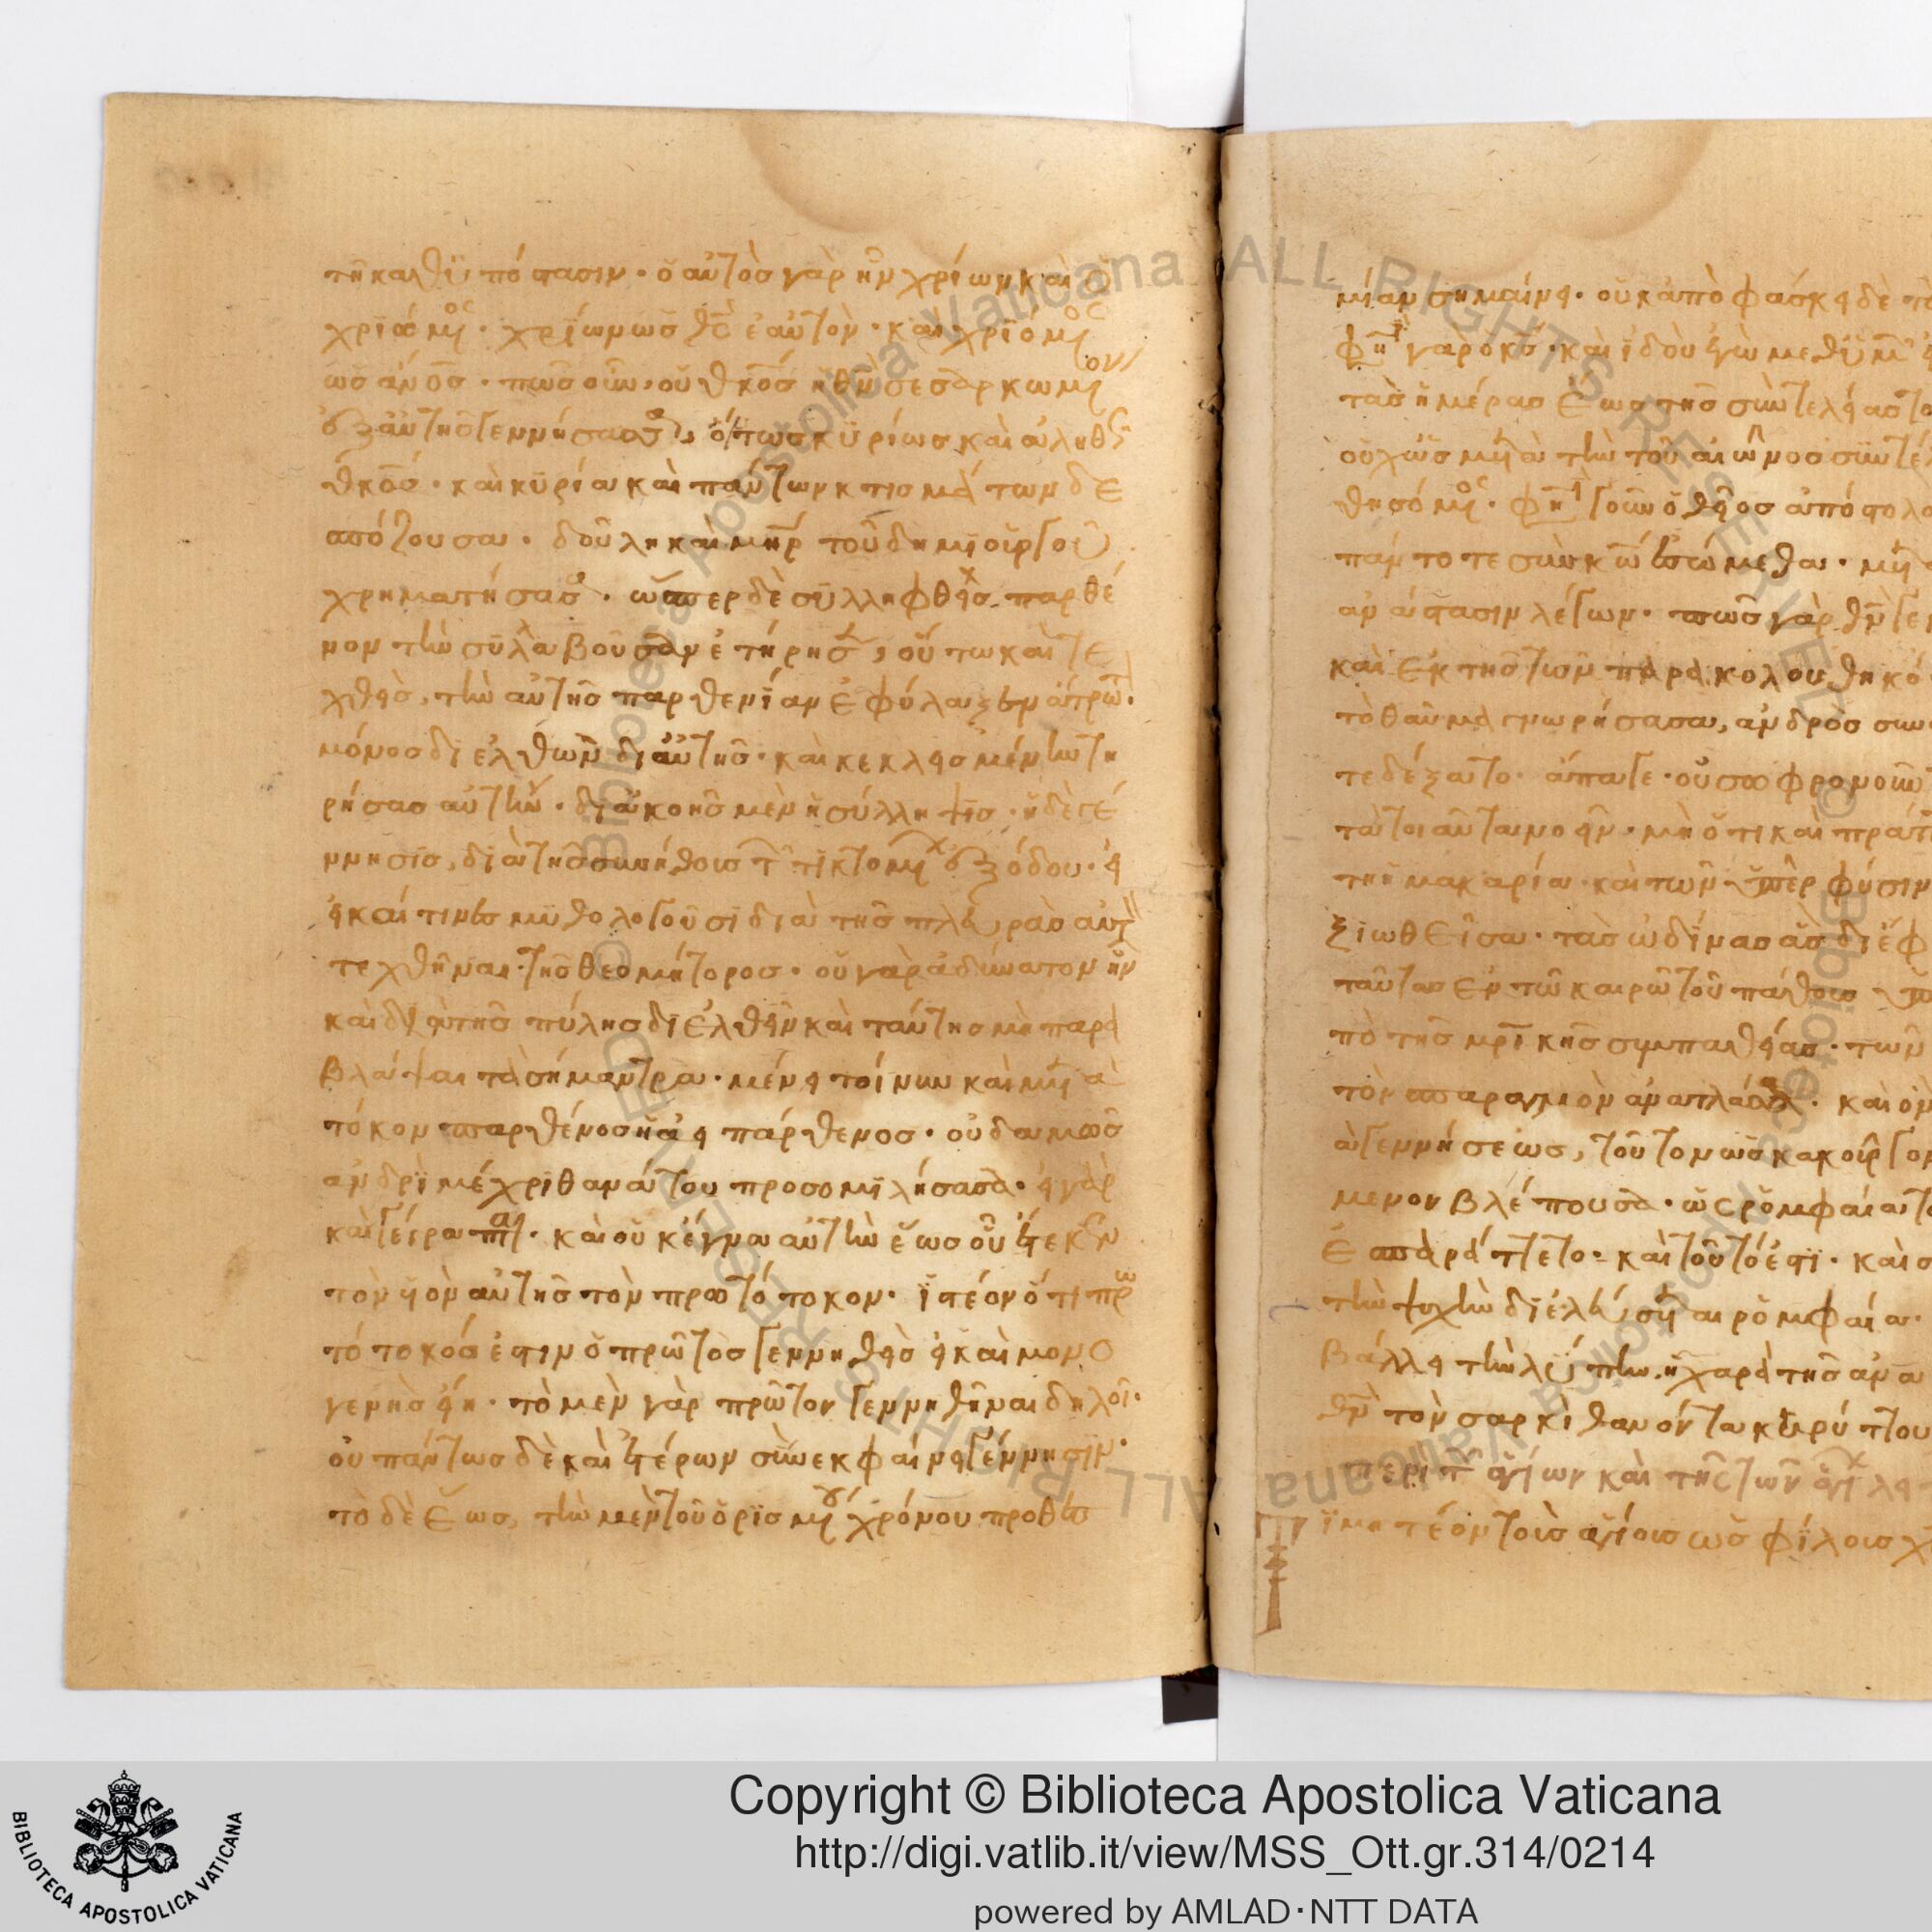 τῆ καθ ὑπόστασιν· ὁ αὐτὸς γὰρ ἦν χρίων καὶ ὁ
χριόμ(εν)ος· χρίων ὡς θ(εὸ)ς ἑαὐτὸν· καὶ χριόμ(εν)ος
ὡς ἄν(θρωπ)ος· πῶς οὖν οὐ θ(εοτό)κος ἡ θ(εὸ)ν σεσαρκωμ(έν)ον
ἐξ αὐτῆς γεννήσασα, ὄντως κυρίως καὶ ἀληθῶς
θ(εοτό)κος· καὶ κυρία καὶ πάντων κτισμάτων δε
σπόζουσα· δούλη καὶ μή(τη)ρ τοῦ δημιουργοῦ
χρηματήσασα· ὥσπερ δὲ συλληφθεὶς παρθέ
νον τὴν συλλαβοῦσαν ἐτήρησε, οὕτω καὶ τε
χθεὶς, τὴν αὐτῆς παρθενίαν ἐφύλαξεν ἄτρωτον·
μόνος διελθὼν δι αὐτῆς· καὶ κεκλεισμένην τη
ρήσας αὐτήν· δι ἀκοῆς μὲν ἡ σύλληψις· ἡ δὲ γέ
ννησις, διὰ τῆς συνήθους τῶν τικτομ(έν)ων ἐξόδου· εἰ
εἰ καί τινες μυθολογοῦσι διὰ τῆς πλευρᾶς αὐτὸν
τεχθῆναι τῆς θεομήτορος· οὐ γὰρ ἀδύνατον ἦν
καὶ διὰ τῆς πύλης διελθεῖν καὶ ταύτης μὴ παρα
βλάψαι τὰ σήμαντρα· μένει τοίνυν καὶ μετὰ
τόκον παρθένος ἡ ἀεὶ πάρθενος· οὐδαμῶς
ἀνδρὶ μέχρι θανάτου προσομιλήσασα· εἰ γὰρ
καὶ γέγραπται· καὶ οὐκ ἔγνω αὐτὴν ἕως οὗ ἔτεκεν
τὸν υἱὸν αὐτῆς τὸν πρωτότοκον· ἰστέον ὅτι πρω
τότοκός ἐστιν ὁ πρῶτος γεννηθεὶς εἰ καὶ μονο
γενὴς εἴη· τὸ μὲν γὰρ πρῶτον γεννηθῆναι δηλοῖ·
οὐ πάντως δὲ καὶ ἑτέρων συνεκφαίνει γέννησιν·
τὸ δὲ ἕως, τὴν μὲν τοῦ ὁρισμ(έν)ου χρόνου προθεσ
μίαν σημαίνει· οὐκ ἀποφάσκει δὲ
φη(σὶ) γὰρ ὁ κ(ύριο)ς· καὶ ἰδοὺ ἐγὼ μεθ ὑμῶν
τὰς ἡμέρας ἕως τῆς συντελείας το
οὐχ ὡς μετὰ τὴν τοῦ αἰῶνος συντέ
θησόμ(εν)ος· φη(σὶ) γοῦν ὁ θεῖος ἀπόστολο
πάντοτε σὺν κ(υρί)ω ἐσώμεθα· μετὰ
ἀνάστασιν λέγων· πῶς γὰρ θ(εὸ)ν γε
καὶ ἐκ τῆς τῶν παρακολουθηκό
τὸ θαῦμα γνωρίσασα, ἀνδρὸς συν
τεδέξατο· ἄπαγε· οὐ σωφρονοῦν
τὰ τοιαῦτα νοεῖν· μὴ ὅτι καὶ πράτ
τη μακαρία· καὶ τῶν ὑπὲρ φύσιν
ξιωθεῖσα· τὰς ὠδίνας ἃς διέφ
ταύτας ἐν τῶ καιρῶ τοῦ πάθους
πὸ τῆς μ(ητ)ρικῆς συμπαθείας· τῶν
τὸν σπαραγμὸν ἀναπλάσα· καὶ ὃν
ὰ γεννήσεως, τοῦτον ὡς κακοῦργον
μενον βλέπουσα· ὡς ρομφαία το
ἐσπαράττετο· καὶ τοῦτό ἐστι· καὶ σ
τὴν ψυχὴν διελεύσεται ρομφαία·
βάλλει τὴν λύπην ἡ χαρὰ τῆς ἀνα
θ(εὸ)ν τὸν σαρκὶ θανόντα κηρύττου
περὶ τῶν ἁγίων καὶ τῆς τῶν ἁγίων λει
Τιμητέον τοὺς ἁγίους ὡς φίλους χ
Copyright © Biblioteca Apostolica Vaticana
http://digi.vatlib.it/view/MSS_Ott.gr.314/0214
powered by AMLAD·NTT DATA
BIBLIOTECA APOSTOLICA VATICANA